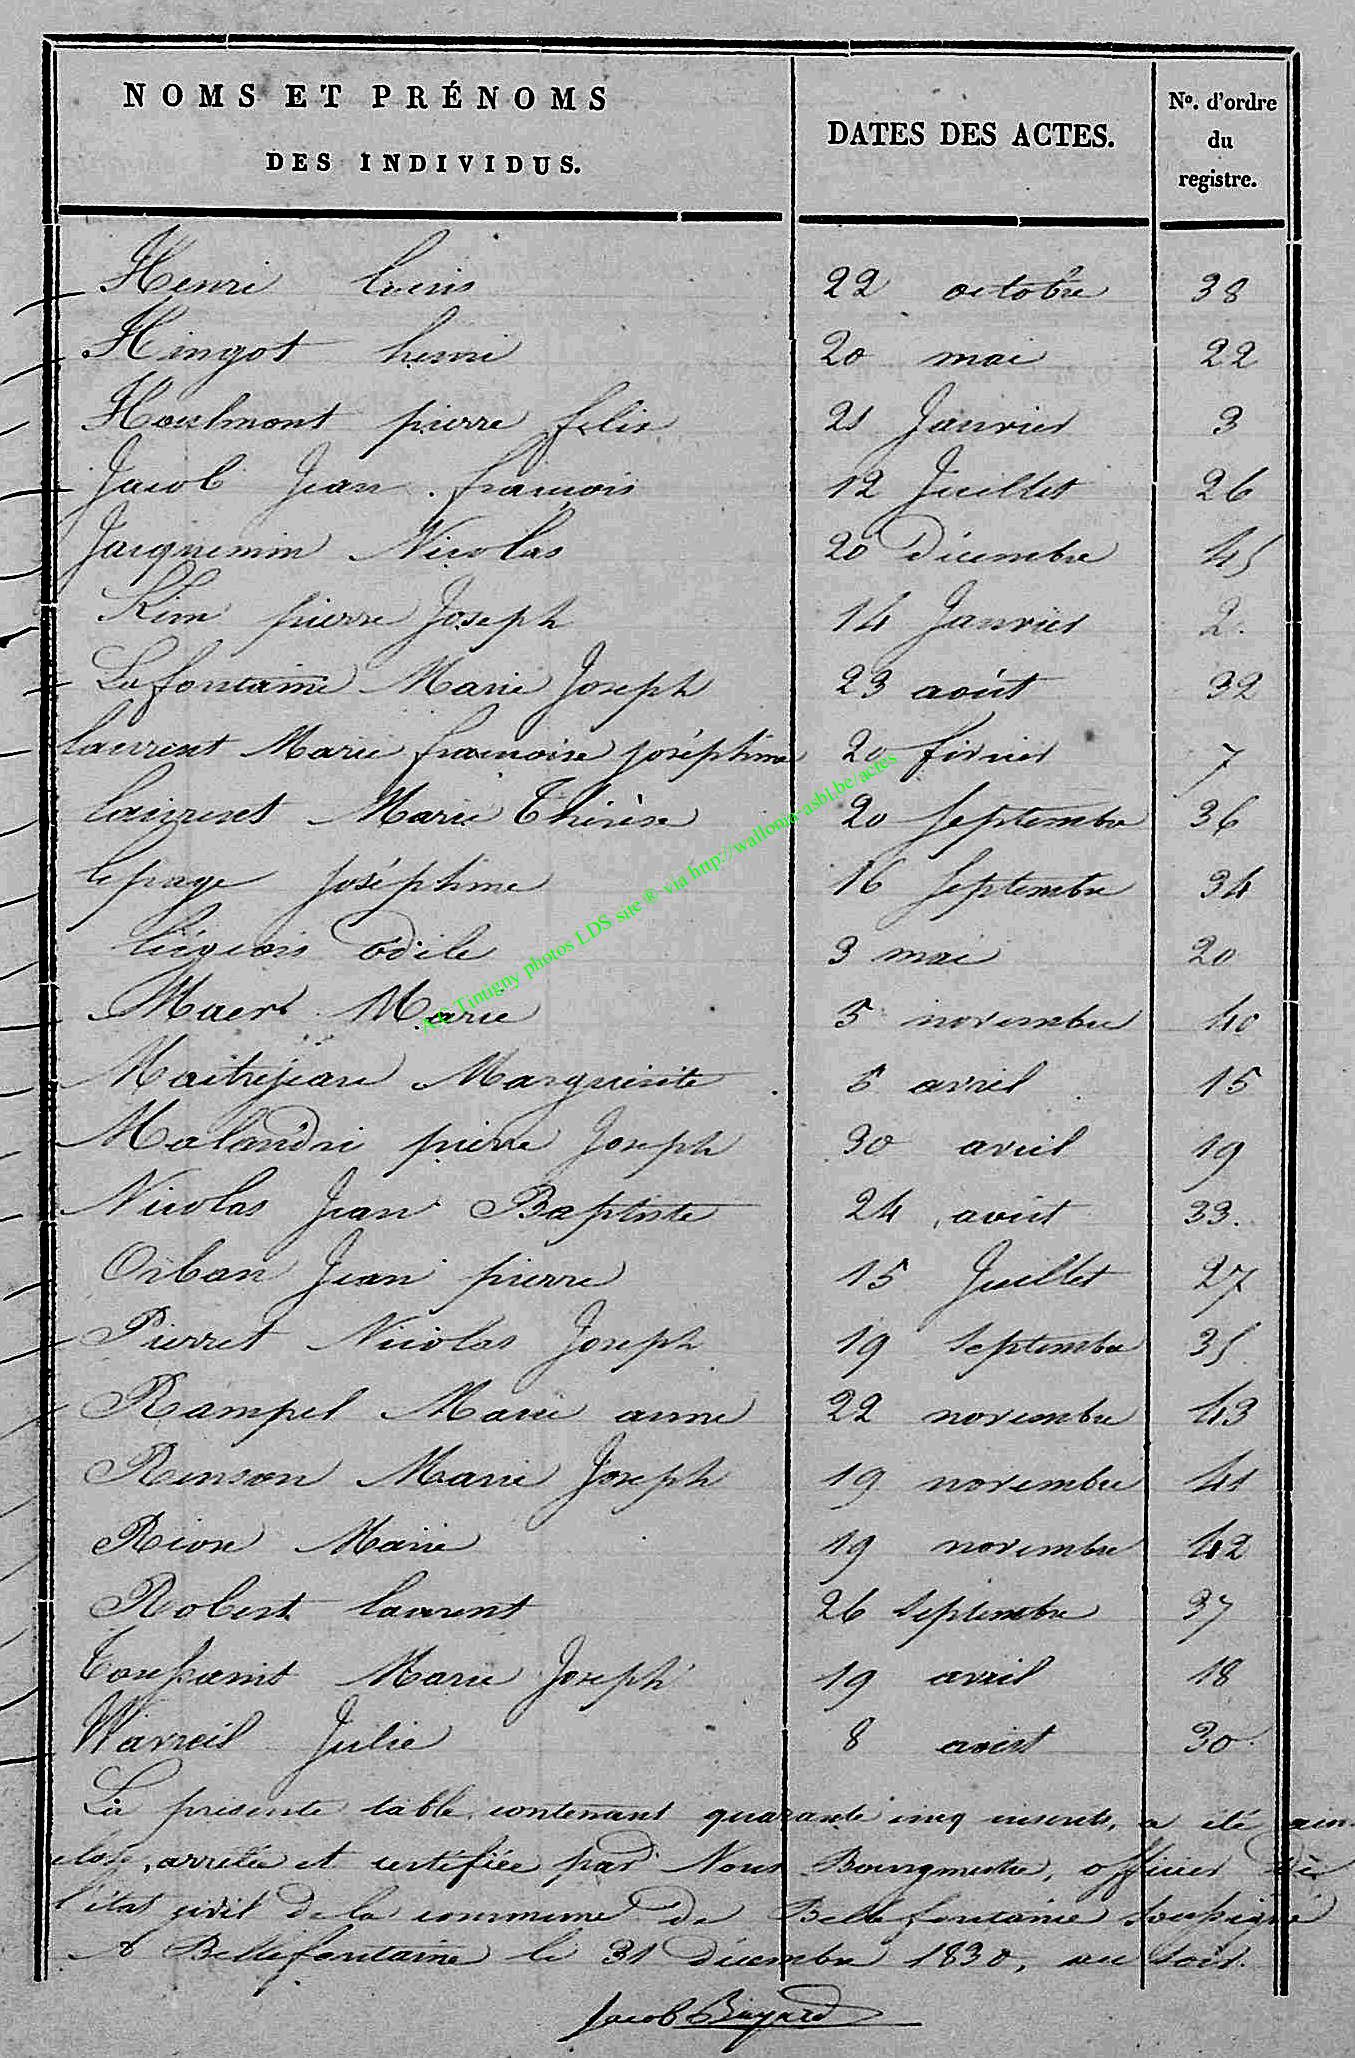 NOMS ET PRÉNOMS
DES INDIVIDUS.
DATES DES ACTES.
No. d'ordre
du
registre.
Henri Louis 22 octobre 38
Hingot henri 20 mai 22
Houlmont pierre felix 21 Janvier 3
Jacob Jean francois 12 Juillet 26
Jacquemin Nicolas 20 Décembre 45
Kim pierre Joseph 14 Janvier 2.
Lafontaine Marie Joseph 23 août 32
laurent Marie francoise joséphine 20 fevrier 7
laurent Marie Thérèse 20 Septembre 36
lepage joséphine 16 Septembre 34
liégeois odile 3 mai 20
Maert Marie 5 novembre 40
Maitrejean Marguerite 5 avril 15
Malandri pierre Joseph 30 avril 19
Nicolas Jean Baptiste 24 août 33.
Orban Jean pierre 15 Juillet 27
Pierret Nicolas Joseph 19 Septembre 35
Rampel Marie anne 22 novembre 43
Renson Marie Joseph 19 novembre 41
Rion Marie 19 novembre 42
Robert laurent 26 Septembre 37
Toussaint Marie Joseph 19 avril 18
Wavreil Julie 8 août 30.
La présente table contenant quarante cinq inscrits, a été
close, arretée et certifiée par Nous Bourgmestre, officier de
l'état civil de la commune de Bellefontaine soussigné
A Bellefontaine le 31 décembre 1830, au soir.
Jacob Bayard
A.E Tintigny photos LDS site ® via http://wallonia-asbl.be/actes